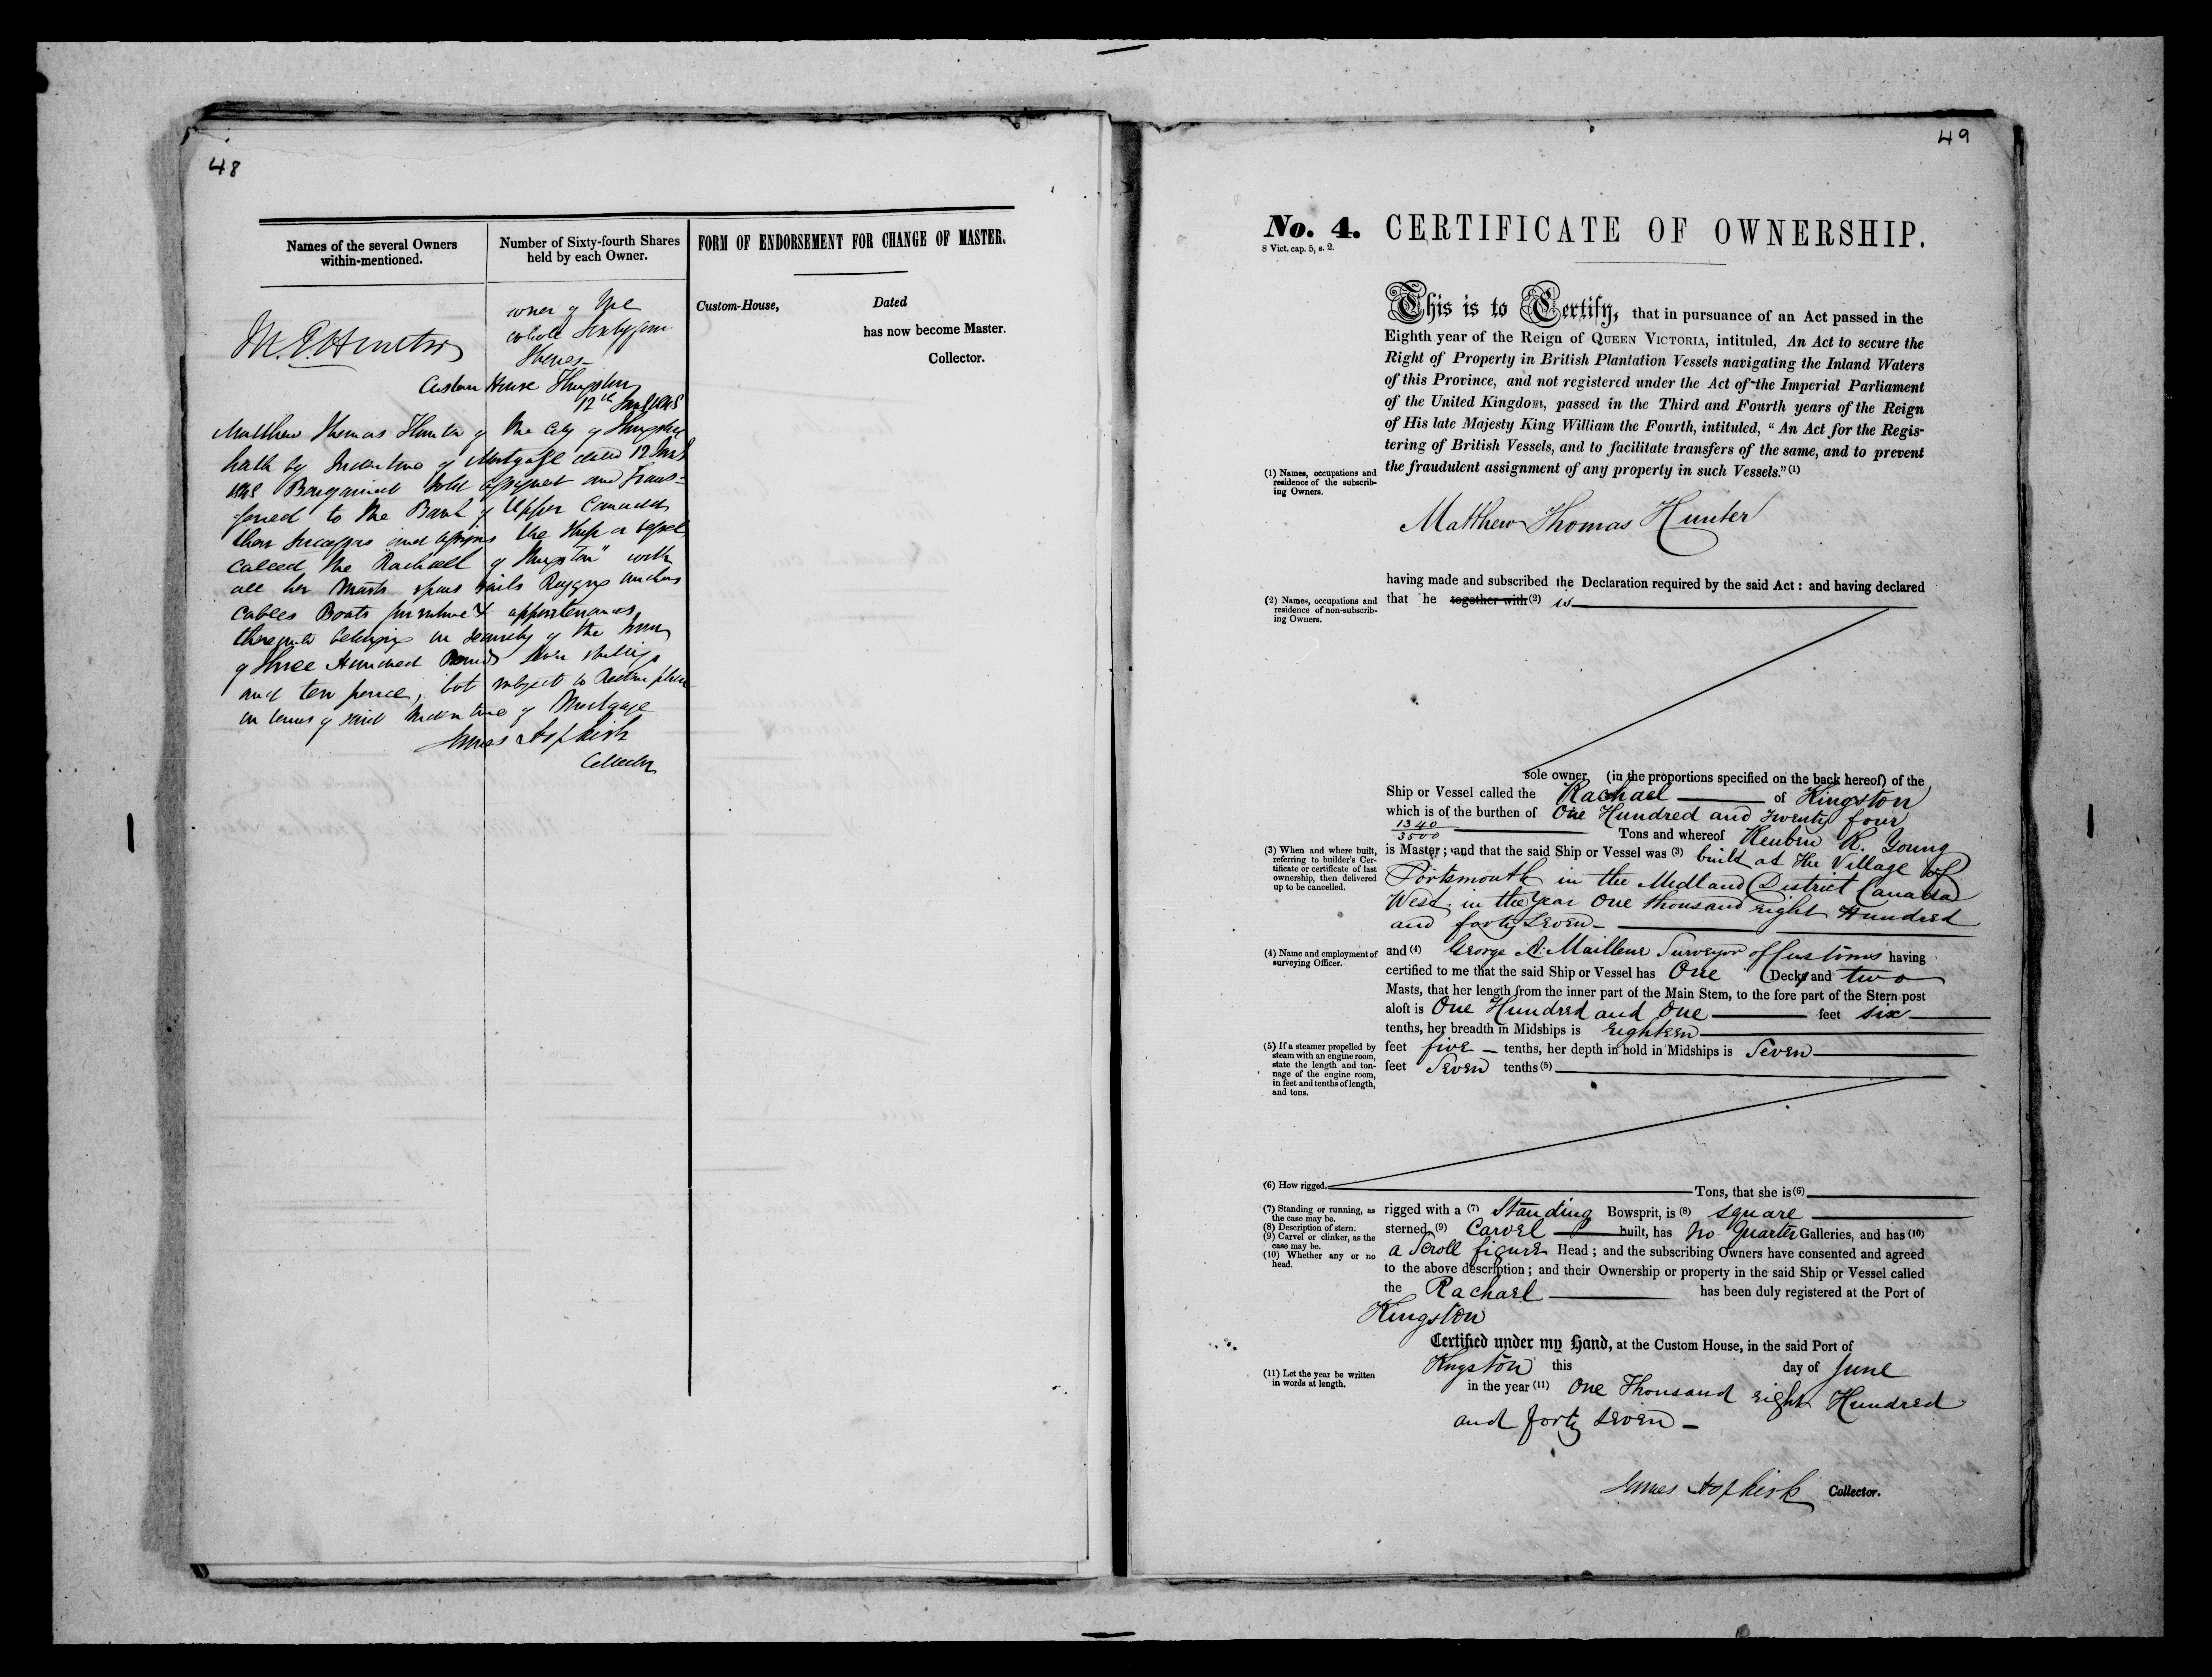 48
Names of the several Owners
within-mentioned.
Number of Sixty-fourth Shares
held by each Owner.
FORM OF ENDORSEMENT FOR CHANGE OF MASTER.
Custom-House, Dated
has now become Master.
Collector.
M. T. Hunter
owner of the
whole Sixty four
Shares
Custom House Kingston
12th 1848
Matthew Thomas Hunter of the City of Kingston
hath by Indenture of Mortgage dated 12
1848 Bargained Sold assigned and Trans-
ferred to the Bank of Upper Canada
their Successors and assigns the Ship or vessel
called the Rachael of Kingston" with
all her Masts spars sails Rigging anchors
Cables Boats furniture & appurtenances
thereunto belonging in security of the sum
of Three Hundred Pounds seven shillings
and ten pence, but subject to Redemption
in terms of said Indenture of Mortgage
James Hopkirk
Collector
49
No. 4. CERTIFICATE OF OWNERSHIP.
8 Vict. cap. 5, s. 2.
This is to Certify, that in pursuance of an Act passed in the
Eighth year of the Reign of QUEEN VICTORIA, intituled, An Act to secure the
Right of Property in British Plantation Vessels navigating the Inland Waters
of this Province, and not registered under the Act of the Imperial Parliament
of the United Kingdom, passed in the Third and Fourth years of the Reign
of His late Majesty King William the Fourth, intituled, "An Act for the Regis-
tering of British Vessels, and to facilitate transfers of the same, and to prevent
the fraudulent assignment of any property in such Vessels." (1)
(1) Names, occupations and
residence of the subscrib-
ing Owners.
Matthew Thomas Hunter
having made and subscribed the Declaration required by the said Act : and having declared
that he together with (2) is
(2) Names, occupations and
residence of non-subscrib-
ing Owners.
sole owner, (in the proportions specified on the back hereof) of the
Ship or Vessel called the Rachael of Kingston
which is of the burthen of One Hundred and twenty four
1340
3500 Tons and whereof Reuben R. Young
is Master ; and that the said Ship or Vessel was (3) built at the Village of
Portsmouth in the Medland District Canada
West in the year One thousand eight Hundred
and forty seven
(3) When and where built,
referring to builder's Cer-
tificate or certificate of last
ownership, then delivered
up to be cancelled.
and (4) George A. Mailleue Surveyor of Customs having
certified to me that the said Ship or Vessel has One Decks and two
Masts, that her length from the inner part of the Main Stem, to the fore part of the Stern post
aloft is One Hundred and One feet six
tenths, her breadth in Midships is Eighteen
feet five tenths, her depth in hold in Midships is Seven
feet Seven tenths (5)
(4) Name and employment of
surveying Officer.
(5) If a steamer propelled by
steam with an engine room,
state the length and ton-
nage of the engine room,
in feet and tenths of length,
and tons.
(6) How rigged. Tons, that she is (6)
rigged with a (7) Standing Bowsprit, is (8) square
sterned, (9) Carvel built, has No Quarter Galleries, and has (10)
a Scroll figure Head ; and the subscribing Owners have consented and agreed
to the above description ; and their Ownership or property in the said Ship or Vessel called
the Rachael has been duly registered at the Port of
Kingston
(7) Standing or running, as
the case may be.
(8) Description of stern.
(9) Carvel or clinker, as the
case may be.
(10) Whether any or no
head.
Certified under my Hand, at the Custom House, in the said Port of
Kingston this day of June
in the year (11) One Thousand eight Hundred
and forty seven
(11) Let the year be written
in words at length.
James Hopkirk Collector.